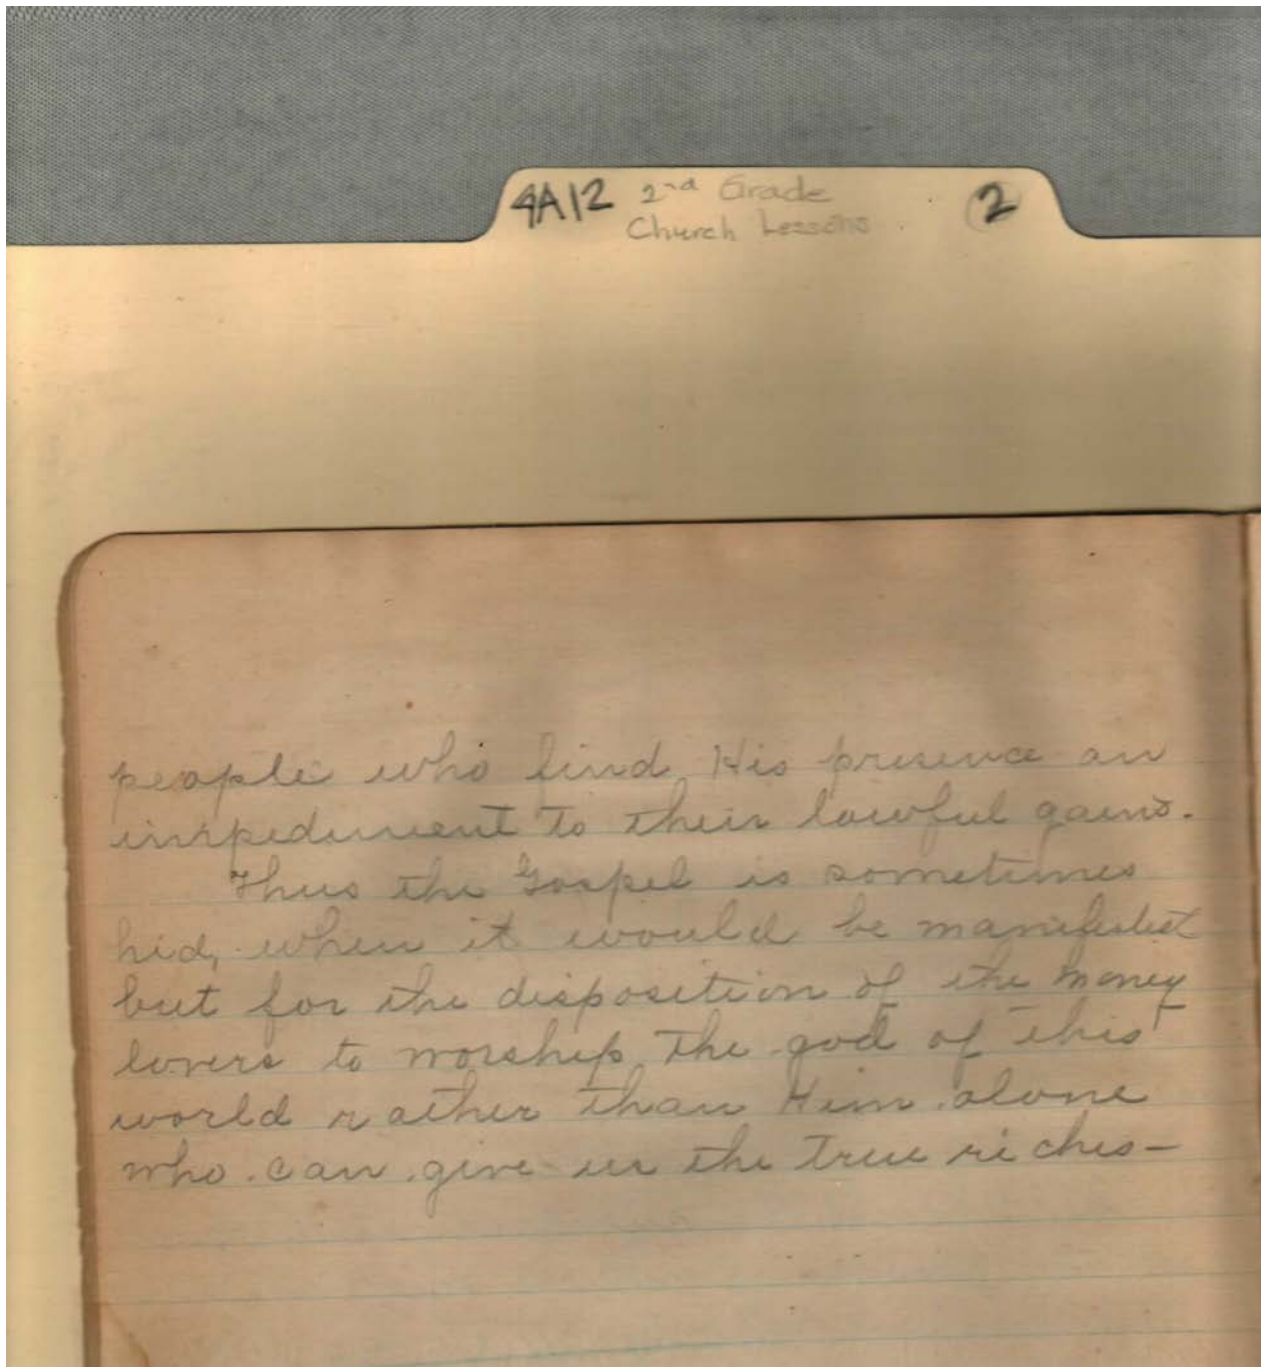 4A12 2nd Grade 2
Church Lessons
people who find His presence an
impediment to their lawful gains.
Thus the Gospel is sometimes
hid, when it would be manifest
but for the disposition of the money
lovers to worship the god of this
world rather than Him alone
who can give us the true riches—